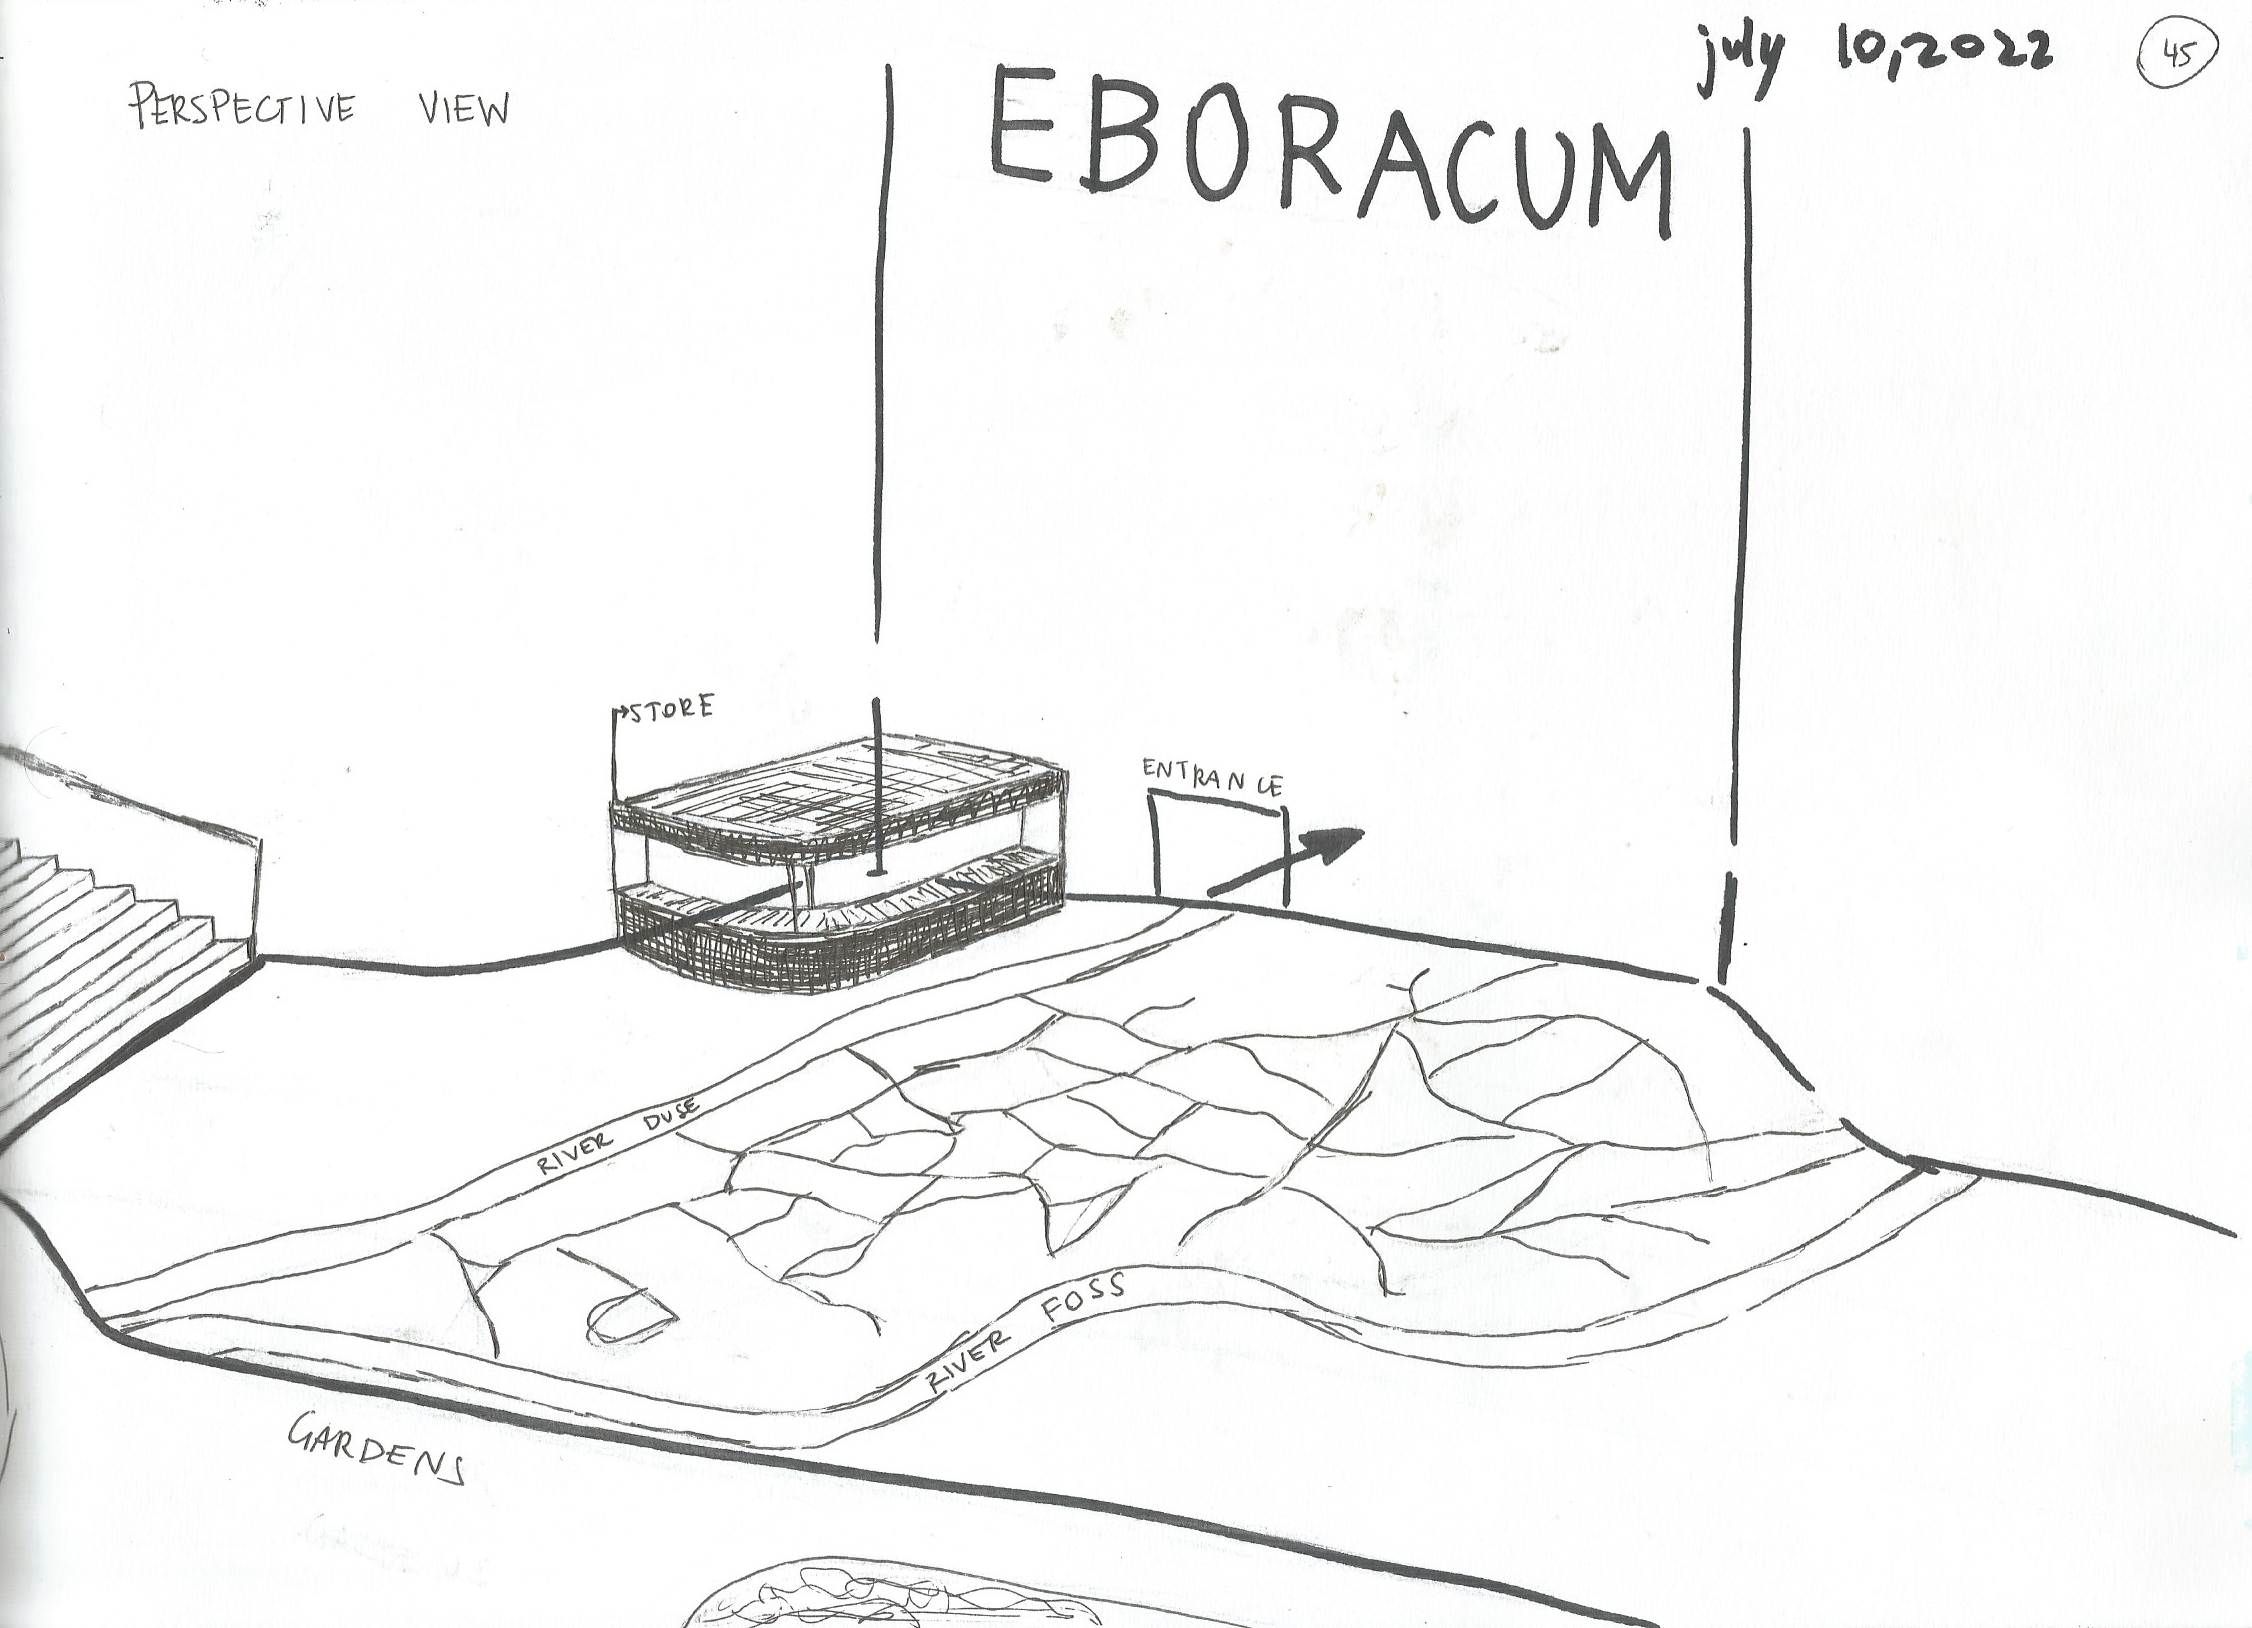 july 10,2022
45
PERSPECTIVE VIEW
EBORACUM
STORE
ENTRANCE
RIVER OUSE
RIVER FOSS
GARDENS